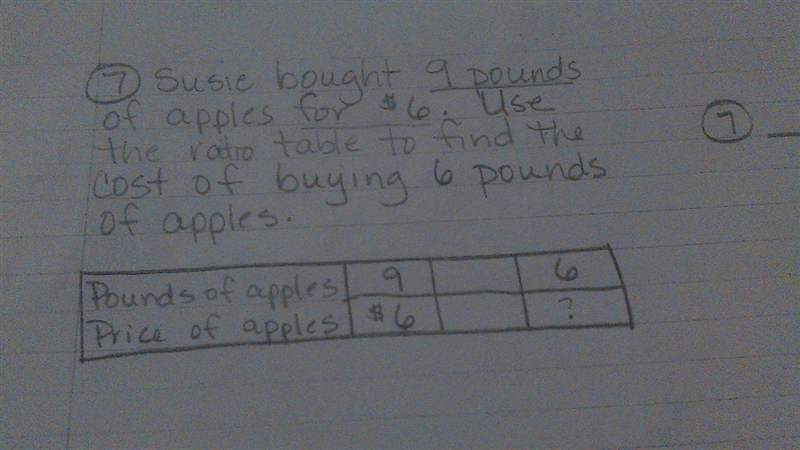 7 Susie bought 9 pounds
of apples for $6. Use
the ratio table to find the
cost of buying 6 pounds
of apples.
7
Pounds of apples 9 6
Price of apples $6 ?